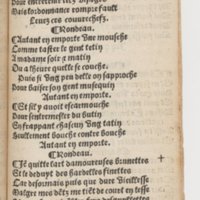 Mais sordonnance rompre fault
Leurs ces couurechefz.
Rondeau.
Autant en emporte vne mousche
Comme taster le gent tetin
A madame soir & matin
Ou a lheure quelle se couche.
Puis si vng peu delle on sapproche
Pour baiser son gent musequin
Autant en emporte
Et sil y auoit escarmouche
Pour sentremesler du hutin
En frappant chascun vng tatin
Seullement bouche contre bouche
Autant en emporte.
Rondeau.
Je quitte tart damoureuses brunettes
Et le deduyt des sardelles finettes
Car desormais puis que dure vieillesse
Malgre mes dens me tiet & court en lesse